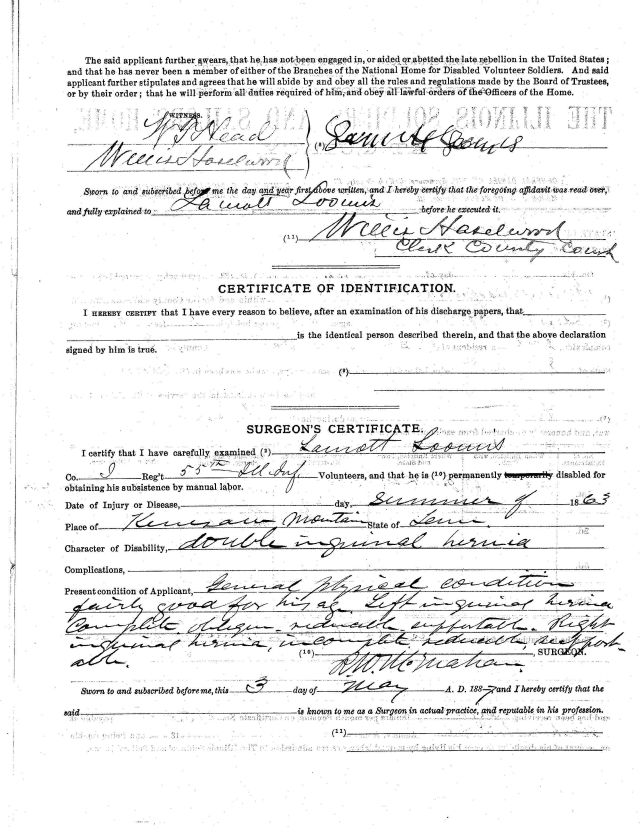 The said applicant further swears, that he has not been engaged in, or aided or abetted the late rebellion in the United States;
and that he has never been a member of either of the Branches of the National Home for Disabled Volunteer Soldiers. And said
applicant further stipulates and agrees that he will abide by and obey all the rules and regulations made by the Board of Trustees,
or by their order; that he will perform all duties required of him, and obey all lawful orders of the Officers of the Home.
WITNESS.
Head
Willis Haselwood
(8) Loomis
Sworn to and subscribed before me the day and year first above written, and I hereby certify that the foregoing affidavit was read over,
and fully explained to Lamott Loomis before he executed it.
(11) Willis Haselwood
Clerk County Court
CERTIFICATE OF IDENTIFICATION.
I HEREBY CERTIFY that I have every reason to believe, after an examination of his discharge papers, that
is the identical person described therein, and that the above declaration
signed by him is true.
(9)
SURGEON'S CERTIFICATE.
I certify that I have carefully examined (9) Lamott Loomis
Co. I Reg't 55th Ill Inf Volunteers, and that he is (10) permanently temporarily disabled for
obtaining his subsistence by manual labor.
Date of Injury or Disease, day, Summer of 1863
Place of Kenesaw Mountain State of Tenn.
Character of Disability, double inguinal hernia
Complications,
Present condition of Applicant, General physical condition
fairly good for his age. Left inguinal hernia
Complete, reducible, supportable. Right
inguinal hernia, incomplete reducible, support-
able. (10) McMahan, SURGEON.
Sworn to and subscribed before me, this 3 day of May A. D. 1887 and I hereby certify that the
said is known to me as a Surgeon in actual practice, and reputable in his profession.
(11)